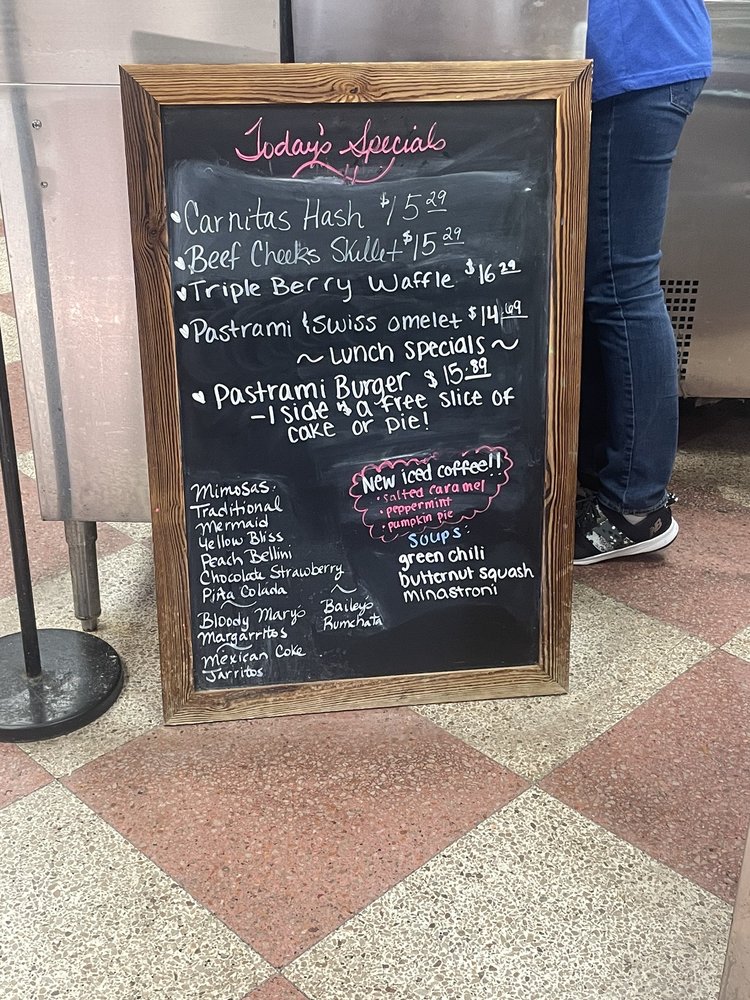 Today's Specials
Carnitas Hash $15.29
Beef Cheeks Skillet $15.29
Triple Berry Waffle $16.29
Pastrami & Swiss omelet $14.69
~ Lunch Specials ~
Pastrami Burger $15.89
- 1 side & a free slice of
cake or pie!
Mimosas:
Traditional
Mermaid
Yellow Bliss
Peach Bellini
Chocolate Strawberry
Piña Colada
Bloody Marys
Margarritos
Mexican Coke
Jarritos
Baileys
Rumchata
New iced coffee!!
• Salted caramel
• peppermint
• pumpkin pie
Soups:
green chili
butternut squash
minastroni